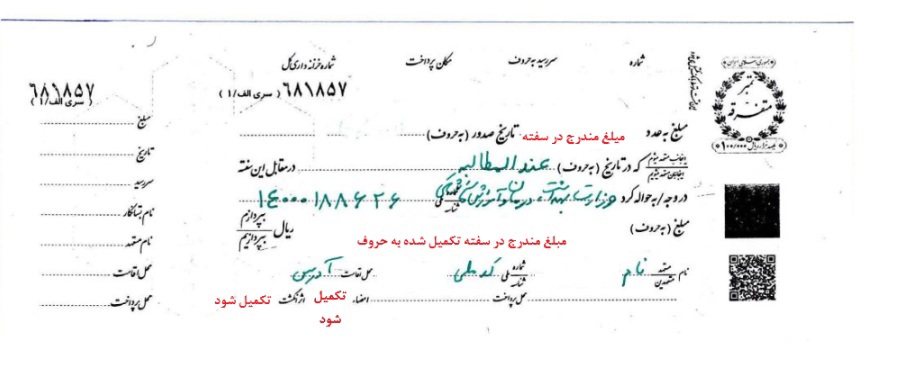 شماره سررسید به حروف مکان پرداخت شماره خزانه‌داری کل
۶۸۱۸۵۷ (سری الف/۱)
۶۸۱۸۵۷ (سری الف/۱)
جمهوری اسلامی ایران
تمبر متفرقه
مبلغ به عدد مبلغ مندرج در سفته تاریخ صدور (به حروف)
که در تاریخ (به حروف) عندالمطالبه در مقابل این سفته
در وجه/به حواله کرد وزارت بهداشت، درمان و آموزش پزشکی شماره/شناسه ملی ۱۴۰۰۰۱۸۸۶۲۶
مبلغ (به حروف) ریال بپردازم/بپردازیم
مبلغ مندرج در سفته تکمیل شده به حروف
نام متعهد/متعهدین نام شماره/شناسه ملی کد ملی محل اقامت آدرس
محل پرداخت امضاء تکمیل شود اثر انگشت تکمیل شود
مبلغ
تاریخ
سررسید
نام بستانکار
نام متعهد
محل اقامت
محل پرداخت